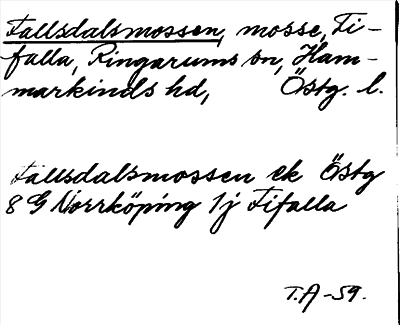 Fallsdalsmossen, mosse, Fi-
falla, Ringarums sn, Ham-
markinds hd, Östg. l.
Fallsdalsmossen ek Östg
8 G Norrköping 1j Fifalla
T.A -59.